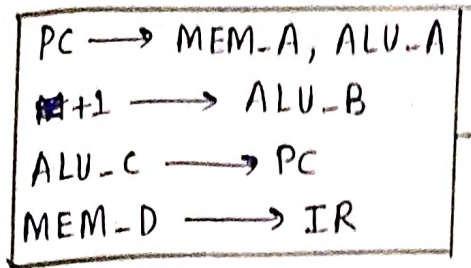 PC → MEM-A, ALU-A
+1 → ALU-B
ALU-C → PC
MEM-D → IR